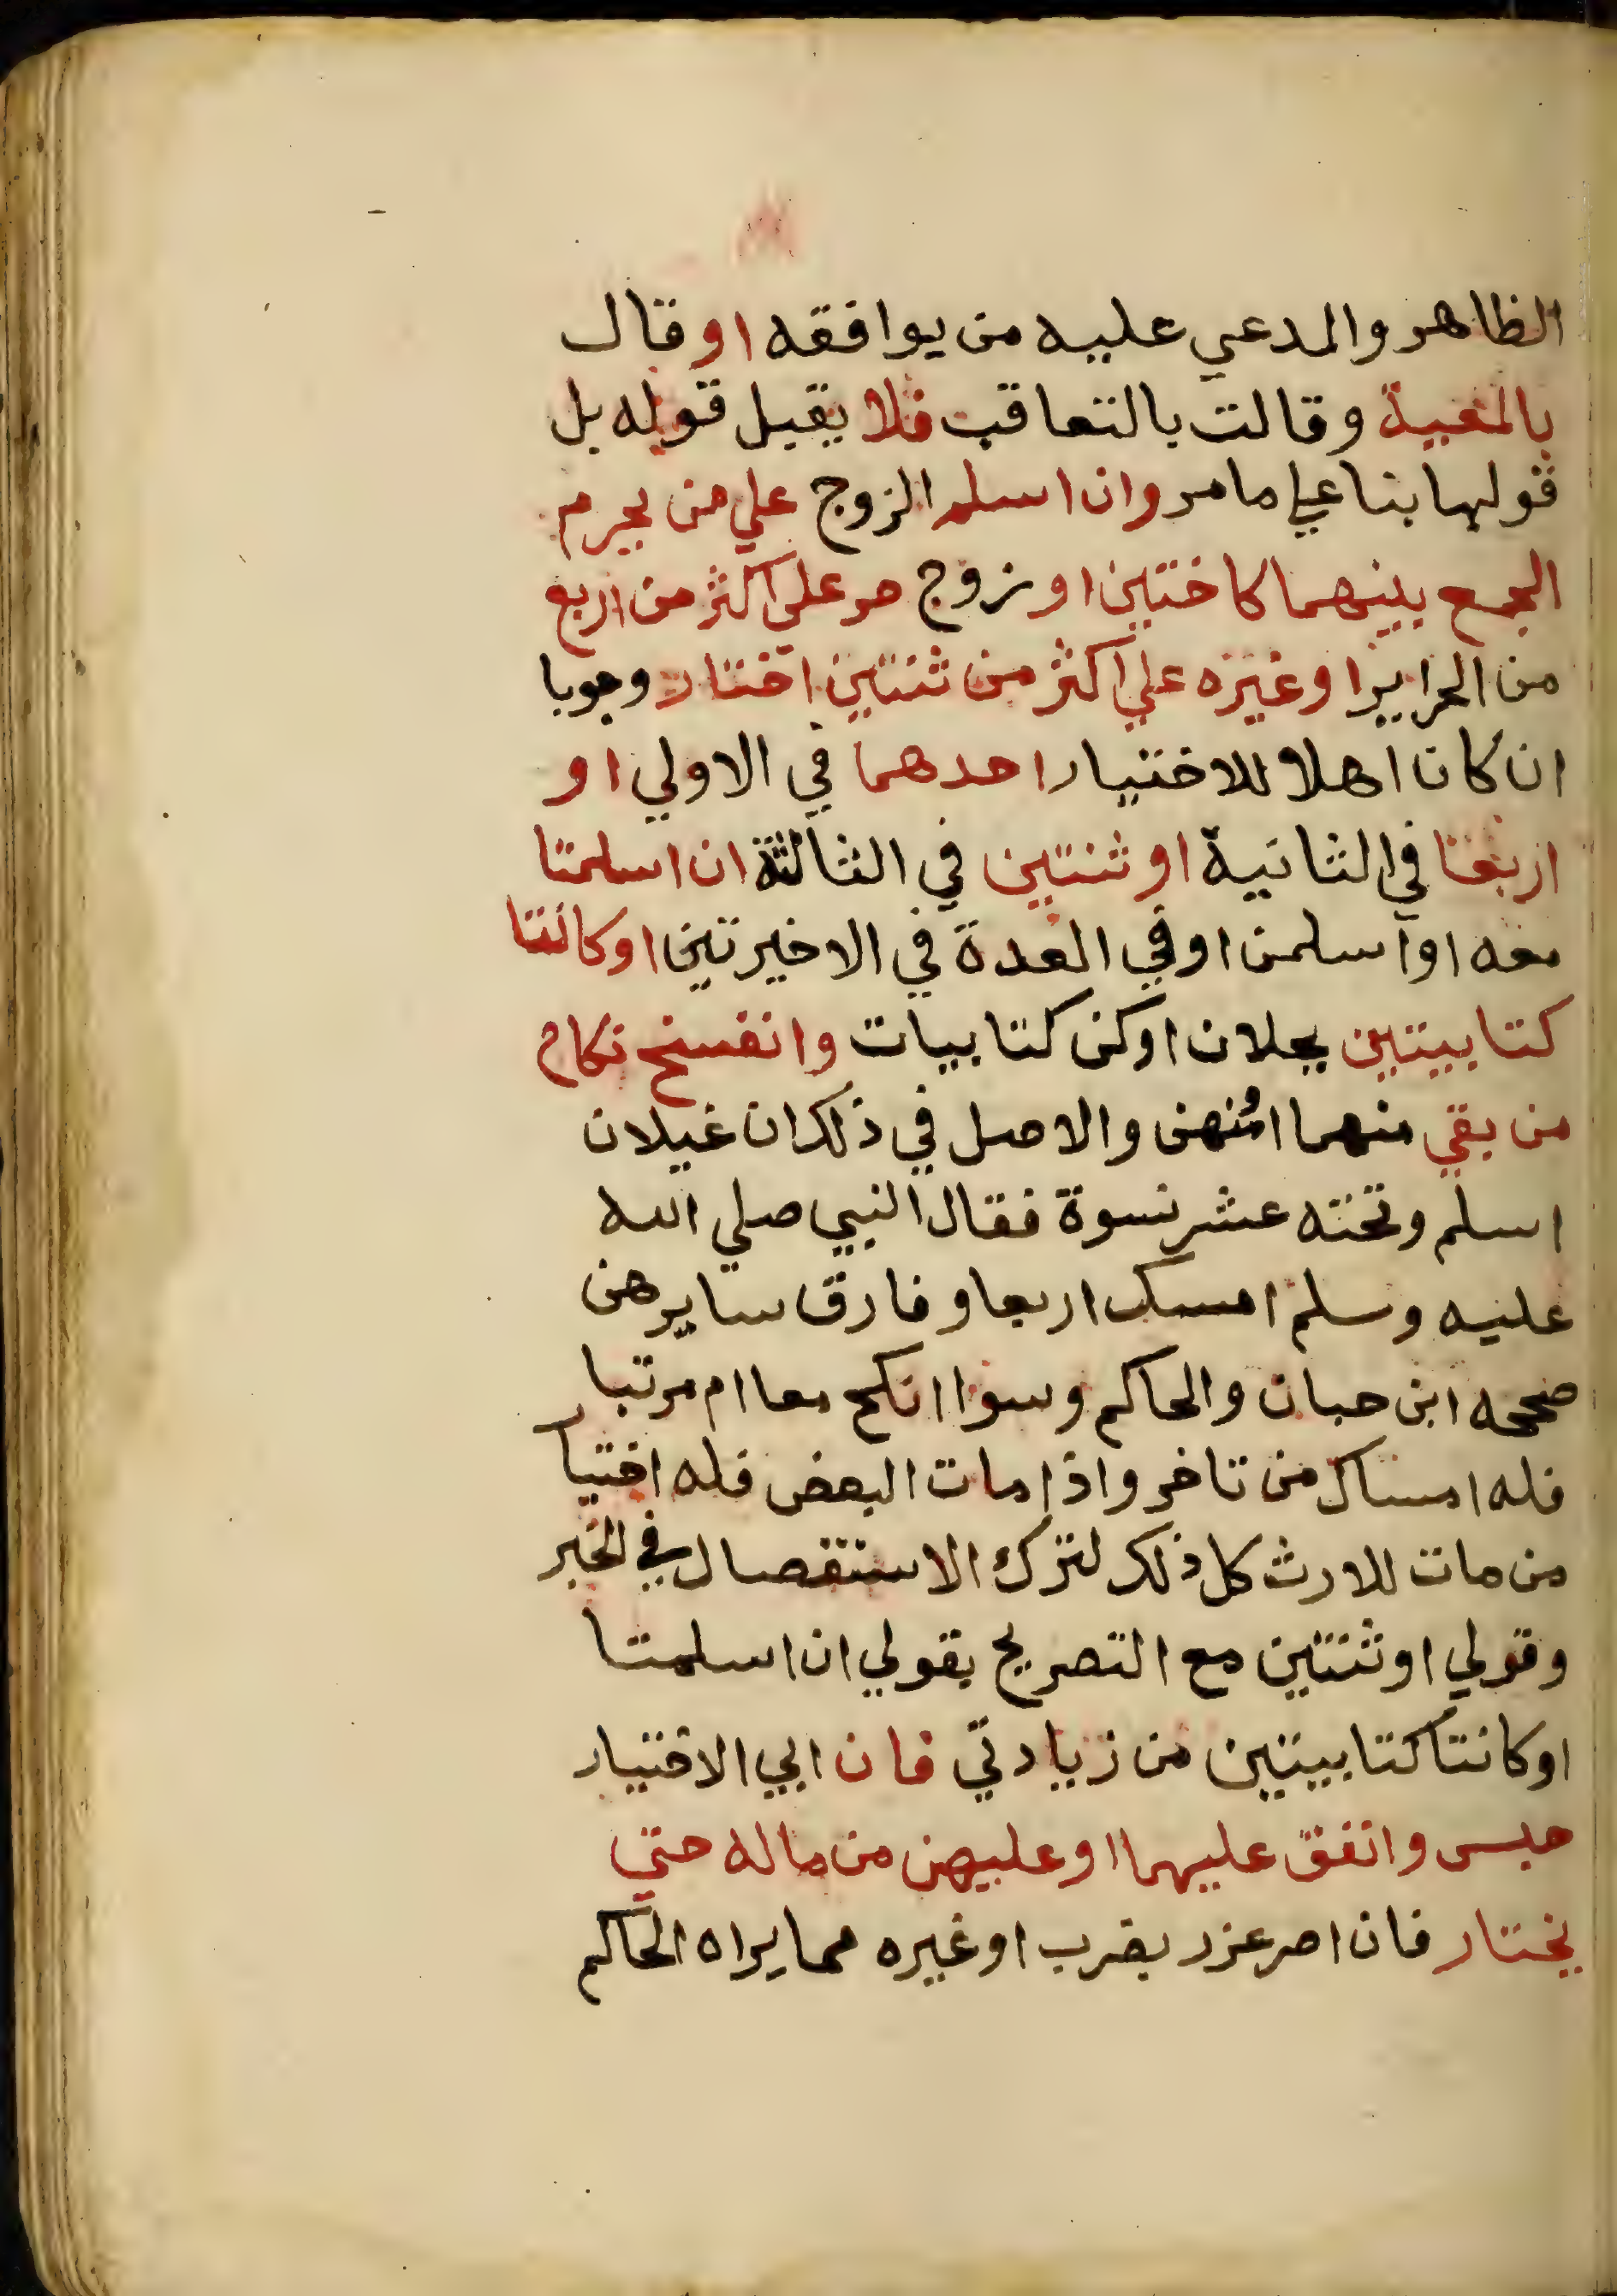 الظاهر والمدعي عليه من يوافقه او قال
بالمعية وقالت بالتعاقب فلا يقبل قوله بل
قولها بنا علي ما مر وان اسلم الزوج علي من يحرم
الجمع بينهما كاختين او زوج حر علي اكثر من اربع
من الحراير او غيره علي اكثر من ثنتين اختار وجوبا
ان كان اهلا للاختيار احدهما في الاولي او
اربعا في الثانية او ثنتين في الثالثة ان اسلمتا
معه او اسلمن او في العدة في الاخيرتين او كانتا
كتابيتين يحلان او كن كتابيات وانفسخ نكاح
من بقي منهما او منهن والاصل في ذلك ان غيلان
اسلم وتحته عشر نسوة فقال النبي صلي الله
عليه وسلم امسك اربعا وفارق سايرهن
صححه ابن حبان والحاكم وسوا انكح معا ام مرتبا
فله امساك من تاخر واذا مات البعض فله اختيا
من مات للارث كل ذلك لترك الاستفصال في الخبر
وقولي او ثنتين مع التصريح بقولي ان اسلمتا
او كانتا كتابيتين من زيادتي فان ابي الاختيار
حبس وانفق عليهما او عليهن من ماله حتي
يختار فان اصر عزر بضرب او غيره مما يراه الحاكم